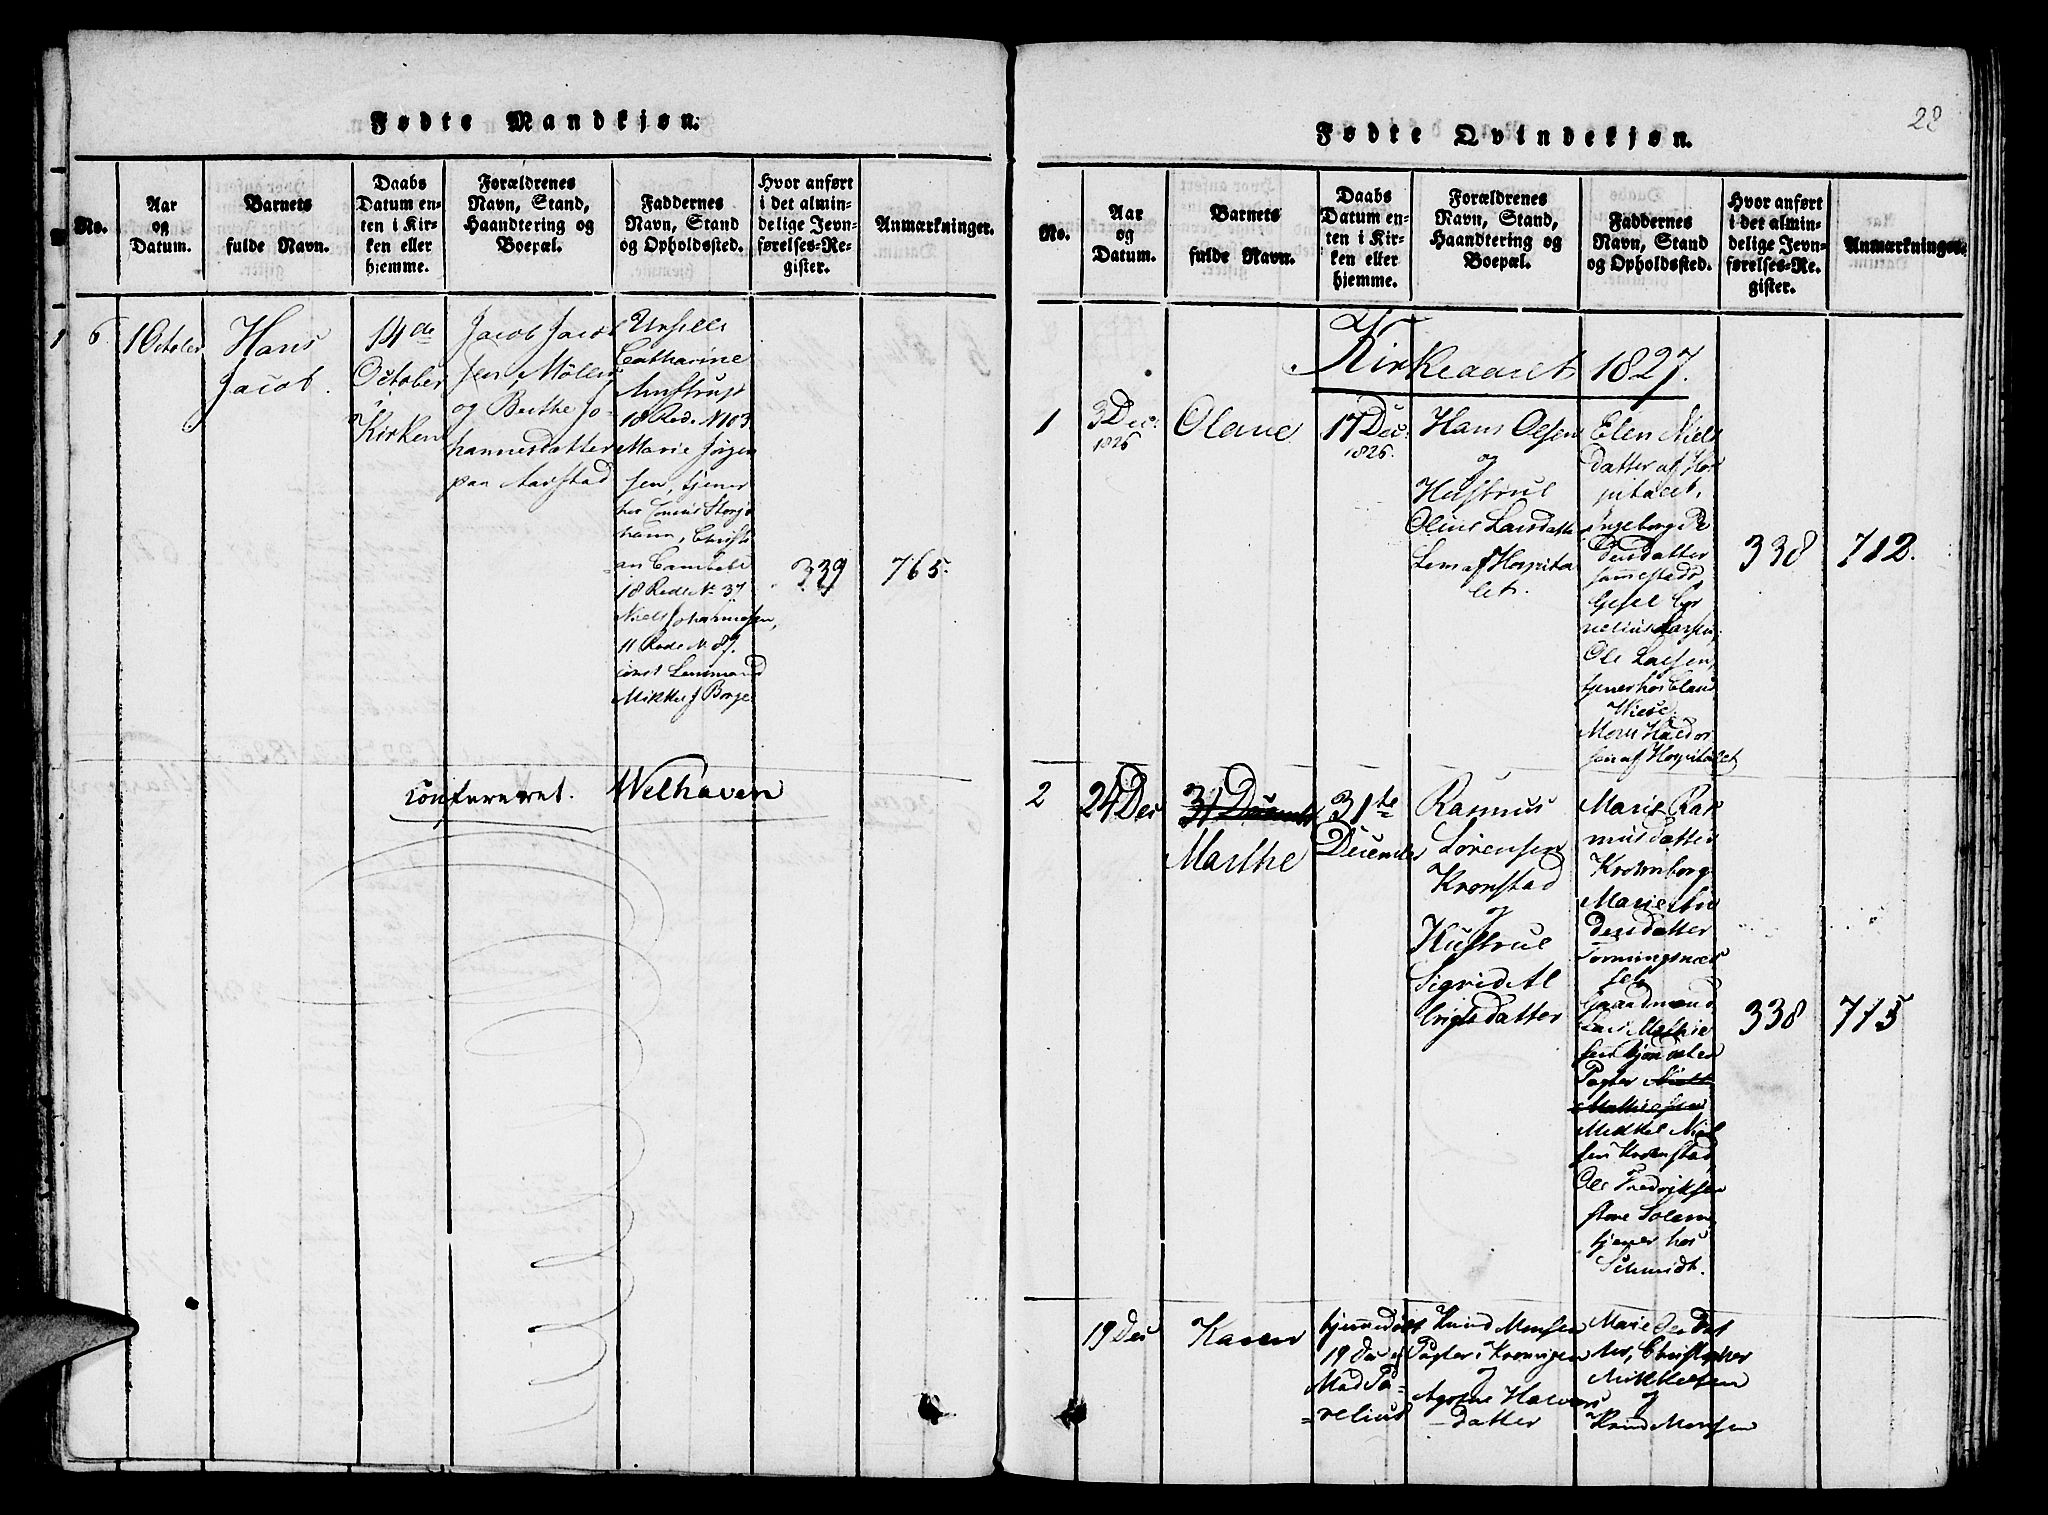 Fødte Mandkjøn.
No.
Aar
og
Datum.
Barnets
fulde Navn.
Daabs
Datum en-
ten i Kir-
ken eller
hjemme.
Forældrenes
Navn, Stand,
Haandtering og
Boepæl.
Faddernes
Navn, Stand
og Opholdssted.
Hvor anført
i det almin-
delige Jevn-
førelses-Re-
gister.
Anmærkninger.
6
1 October
Hans
Jacob.
14de
October
i
Kirken
Jacob Jacob
sen Möller
og Berthe Jo
hannesdatter
paa Aarstad
Catharine
18 Rode N 103
Marie Jörgen
sen, tjener
hos
Christi
an
18 Rode No 37
Niels Johannesen,
11 Rode N 87.
339
765.
confereret. Welhaven
28
Fødte Qvindekjøn.
No.
Aar
og
Datum.
Barnets
fulde Navn.
Daabs
Datum en-
ten i Kir-
ken eller
hjemme.
Forældrenes
Navn, Stand,
Haandtering og
Boepæl.
Faddernes
Navn, Stand
og Opholdssted.
Hvor anført
i det almin-
delige Jevn-
førelses-Re-
gister.
Anmærkninger.
Kirkeaaret 1827.
1
3 Dec:
1826
Olave
17 Dec:
1826.
Hans Olsen
og
Hustrue
Larsdatter
Lem af Hospita
let.
Elen Niels
datter af Hos
pitalet,
Ingeborg Pe
dersdatter
sammesteds,
Gesel Cor
nelius Larsen,
Ole Larsen,
tjener hos Claus
Wiese.
sen af Hospitalet
338
712.
2
24 Dec
31 December
Marthe
31te
December
Rasmus
Sørensen
Kronstad
og
Hustrue
Sigrid
datter
Marie Ras
musdatter
Kronborg
Marie
dersdatter
Gaardmand
Lars Mathie
sen
Pagter
Mathiesen
Mikkel Niel
sen Kronstad,
Ole Fredriksen
tjener hos
Schmidt.
338
715
19 Dec
Karen
hjemmedöbt
19 Dec af
Mad
Knud Monsen
Pagter i
og
datter
Marie
ter, Christopher
Mikkelsen
og
Knud Monsen